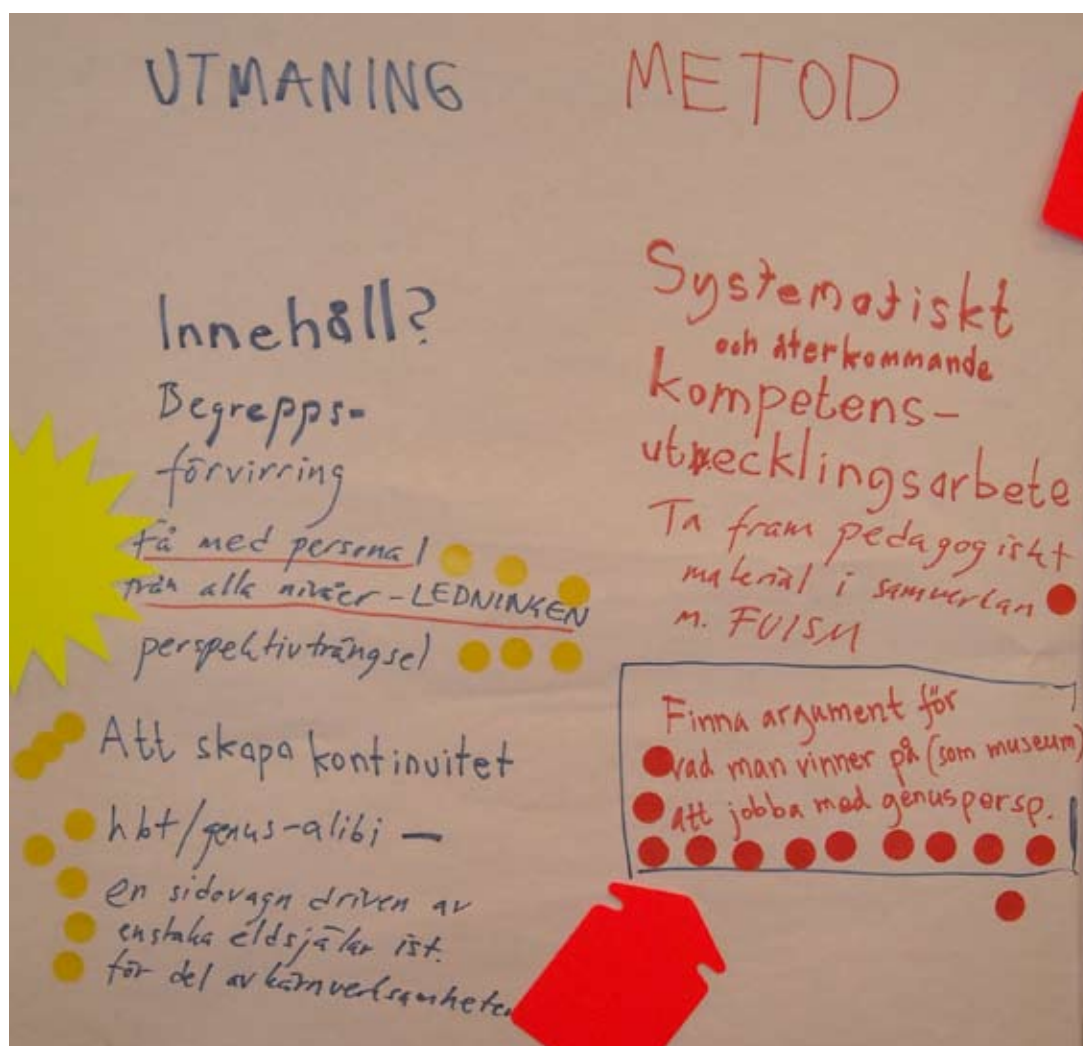 UTMANING
Innehåll?
Begrepps-
förvirring
Få med personal
från alla nivåer - LEDNINGEN
perspektivträngsel
Att skapa kontinuitet
hbt/genus-alibi —
en sidovagn driven av
enstaka eldsjälar ist.
för del av kärnverksamheten
METOD
Systematiskt
och återkommande
kompetens-
utvecklingsarbete
Ta fram pedagogiskt
material i samverkan
m. FUISM
Finna argument för
vad man vinner på (som museum)
att jobba med genuspersp.